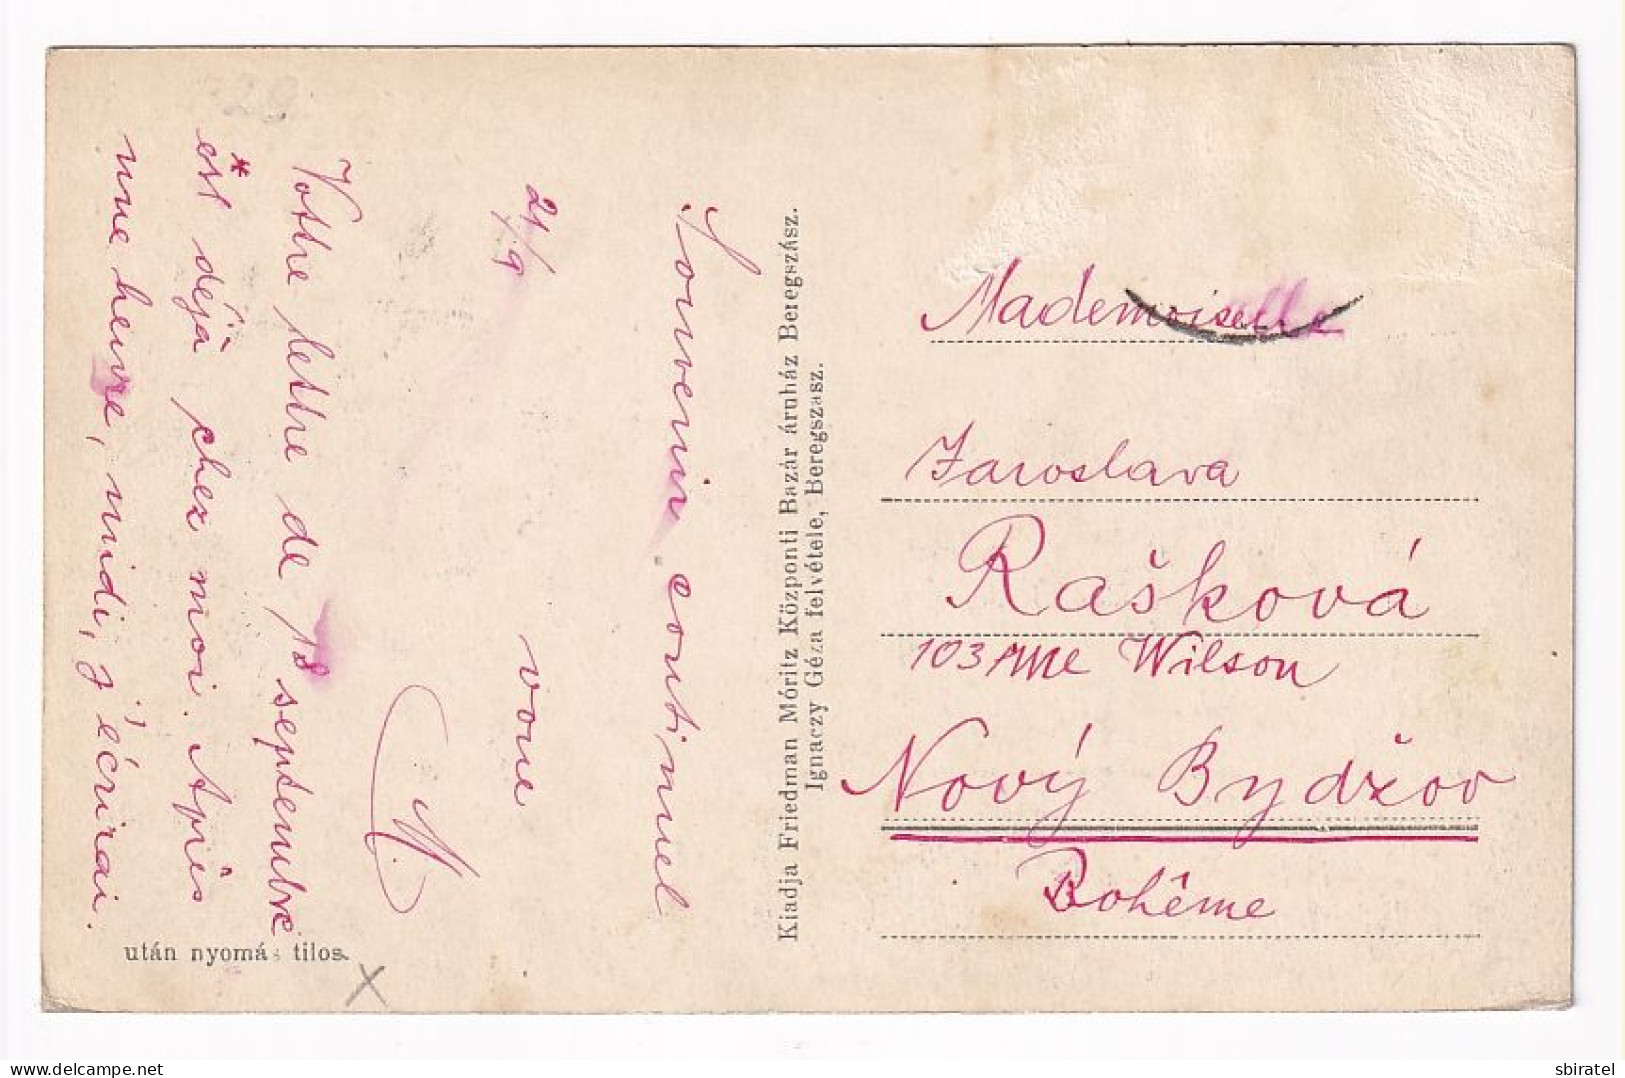 Souvenir continuel
21/9 vone
M.
Vottre lettre de 18 septembre
est déjà chez moi. Après
une heure, midi, j'écrirai.
Kiadja Friedman Móritz Központi Bazár áruház Beregszász.
Ignaczy Géza felvétele, Beregszasz.
Mademoiselle
Jaroslava
Rašková
103 Wilson
Nový Bydžov
Bohême
után nyomás tilos.
sbiratel